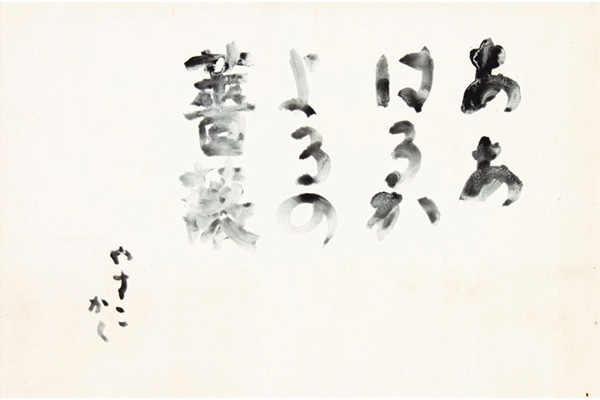 ああ
はるか
よるの
薔薇
やすこ
かく